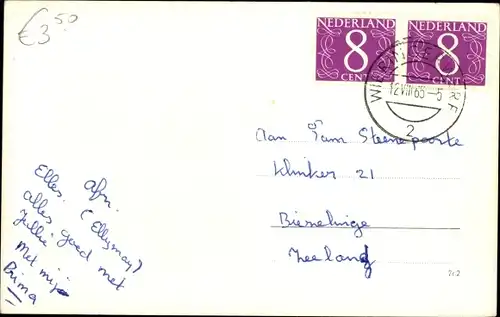 € 3.50
NEDERLAND
8
CENT
NEDERLAND
8
CENT
12 VIII 65 - 5
2
Aan Fam Steenpoorte
Klinker 21
Biezelinge
Zeeland
7c2
afz.
Elles. (Ellymay)
alles goed met
Jullie
Met mij
Prima